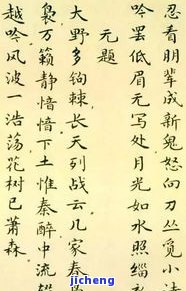 忍看朋輩成新鬼怒向刀丛觅小诗
吟罢低眉无写处月光如水照缁
无题
大野多钩棘长天列战云几家春
袅万籁静愔愔下土惟秦醉中流
越吟风波一浩荡花树已萧森
jicheng